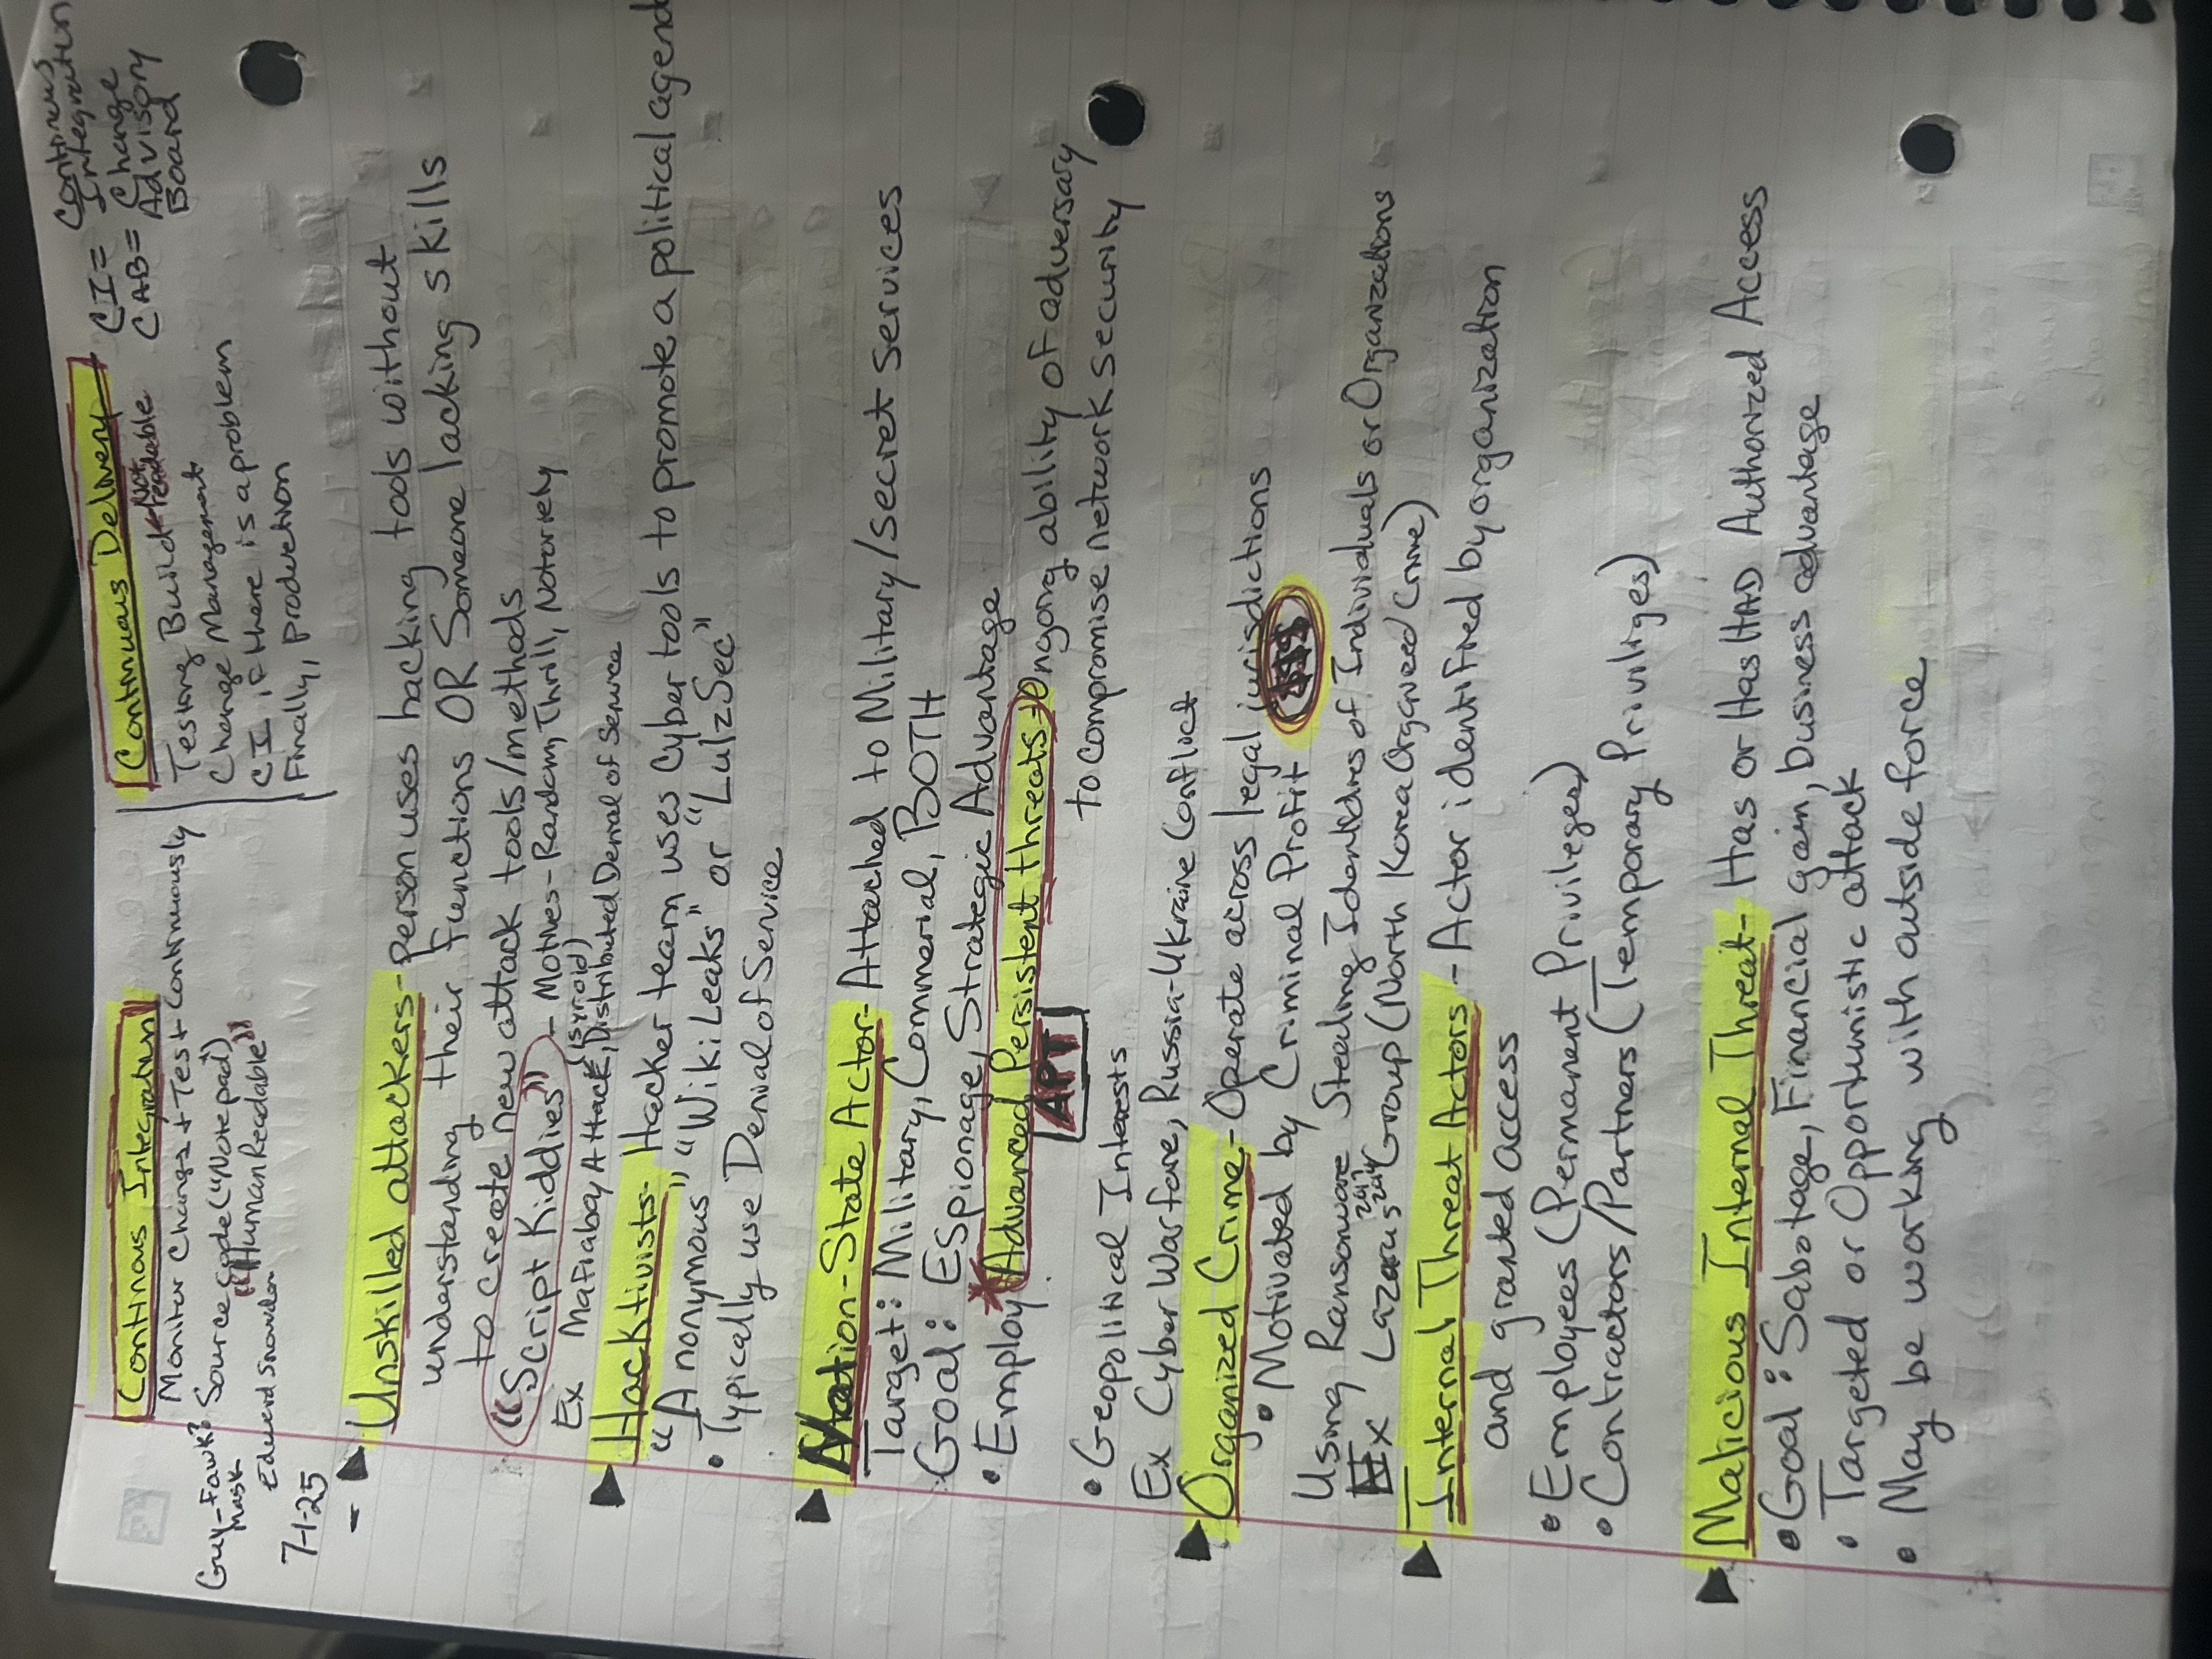 Continous Integration
Monitor Changes + Test Continuously
Source code ("Notepad")
"Human Readable"
Guy-Fawk?
Mask
Edward Snowden
7-1-25
Continuous Delivery
Testing Build ← Not readable
Change Management
CI if there is a problem
Finally, production
CI = Continous Integration
CAB = Change Advisory Board
- ▶ Unskilled attackers - person uses hacking tools without
understanding their functions OR Someone lacking skills
to create new attack tools/methods
"Script Kiddies" - Motives - Random, Thrill, Notoriety
Ex Mafiaboy Attack, Distributed Denial of Service
▶ Hacktivists - Hacker team uses cyber tools to promote a political agend
"Anonymous" "WikiLeaks" or "LulzSec"
• Typically use Denial of Service
▶ Nation-State Actor - Attached to Military/secret services
Target: Military, Commerial, BOTH
Goal: Espionage, Strategic Advantage
• Employ *Advanced Persistent threats - Ongong ability of adversary
APT
to compromise network security
• Geopolitical Interests
Ex Cyber Warfare, Russia-Ukraine Conflict
▶ Organized Crime - Operate across legal jurisdictions
• Motivated by Criminal Profit $$$
Using Ransomware Stealing Identities of Individuals or Organizations
Ex Lazarus Group (North Korea Organized Crime)
▶ Internal Threat Actors - Actor identified by organization
and granted access
• Employees (Permanent Privileges)
• Contractors/Partners (Temporary Priviliges)
▶ Malicious Internal Threat - Has or Has HAD Authorized Access
• Goal: Sabotage, Financial gain, business advantage
• Targeted or Opportunistic attack
• May be working with outside force